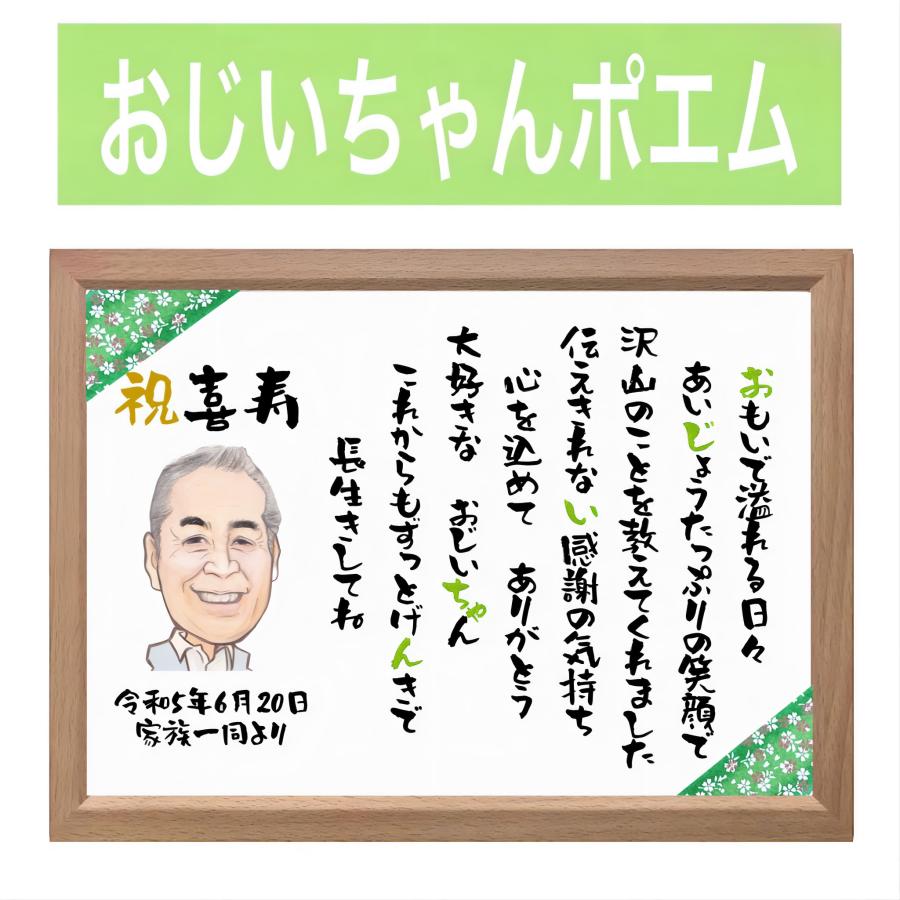 おじいちゃんポエム
おもいで溢れる日々
あいじょうたっぷりの笑顔で
沢山のことを教えてくれました
伝えきれない感謝の気持ち
心を込めて ありがとう
大好きな おじいちゃん
これからもずっとげんきで
長生きしてね
祝喜寿
令和5年6月20日
家族一同より